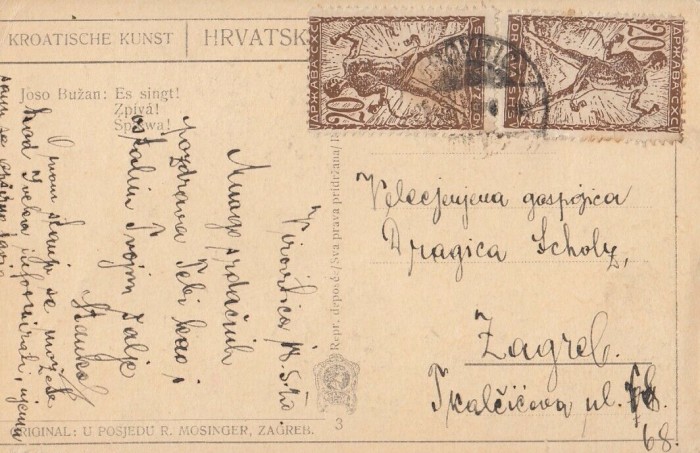 KROATISCHE KUNST | HRVATSK
Joso Bužan: Es singt!
Zpívá!
Śpiewa!
20
ДРЖАВА СХС
20
ДРЖАВА СХС
Virovitica 18.5.20
Mnogo srdačnih
pozdrava Tebi kao i
ostalim Tvojim šalje
Stanka
O mom stanju se možete
kod Ivekov informirati, njemu
sam se
Repr. depose/Sva prava pridržana/
Velecjenjena gospojica
Dragica Scholz,
Zagreb.
Tkalčićeva ul. 68.
68.
ORIGINAL: U POSJEDU R. MOSINGER, ZAGREB.
3